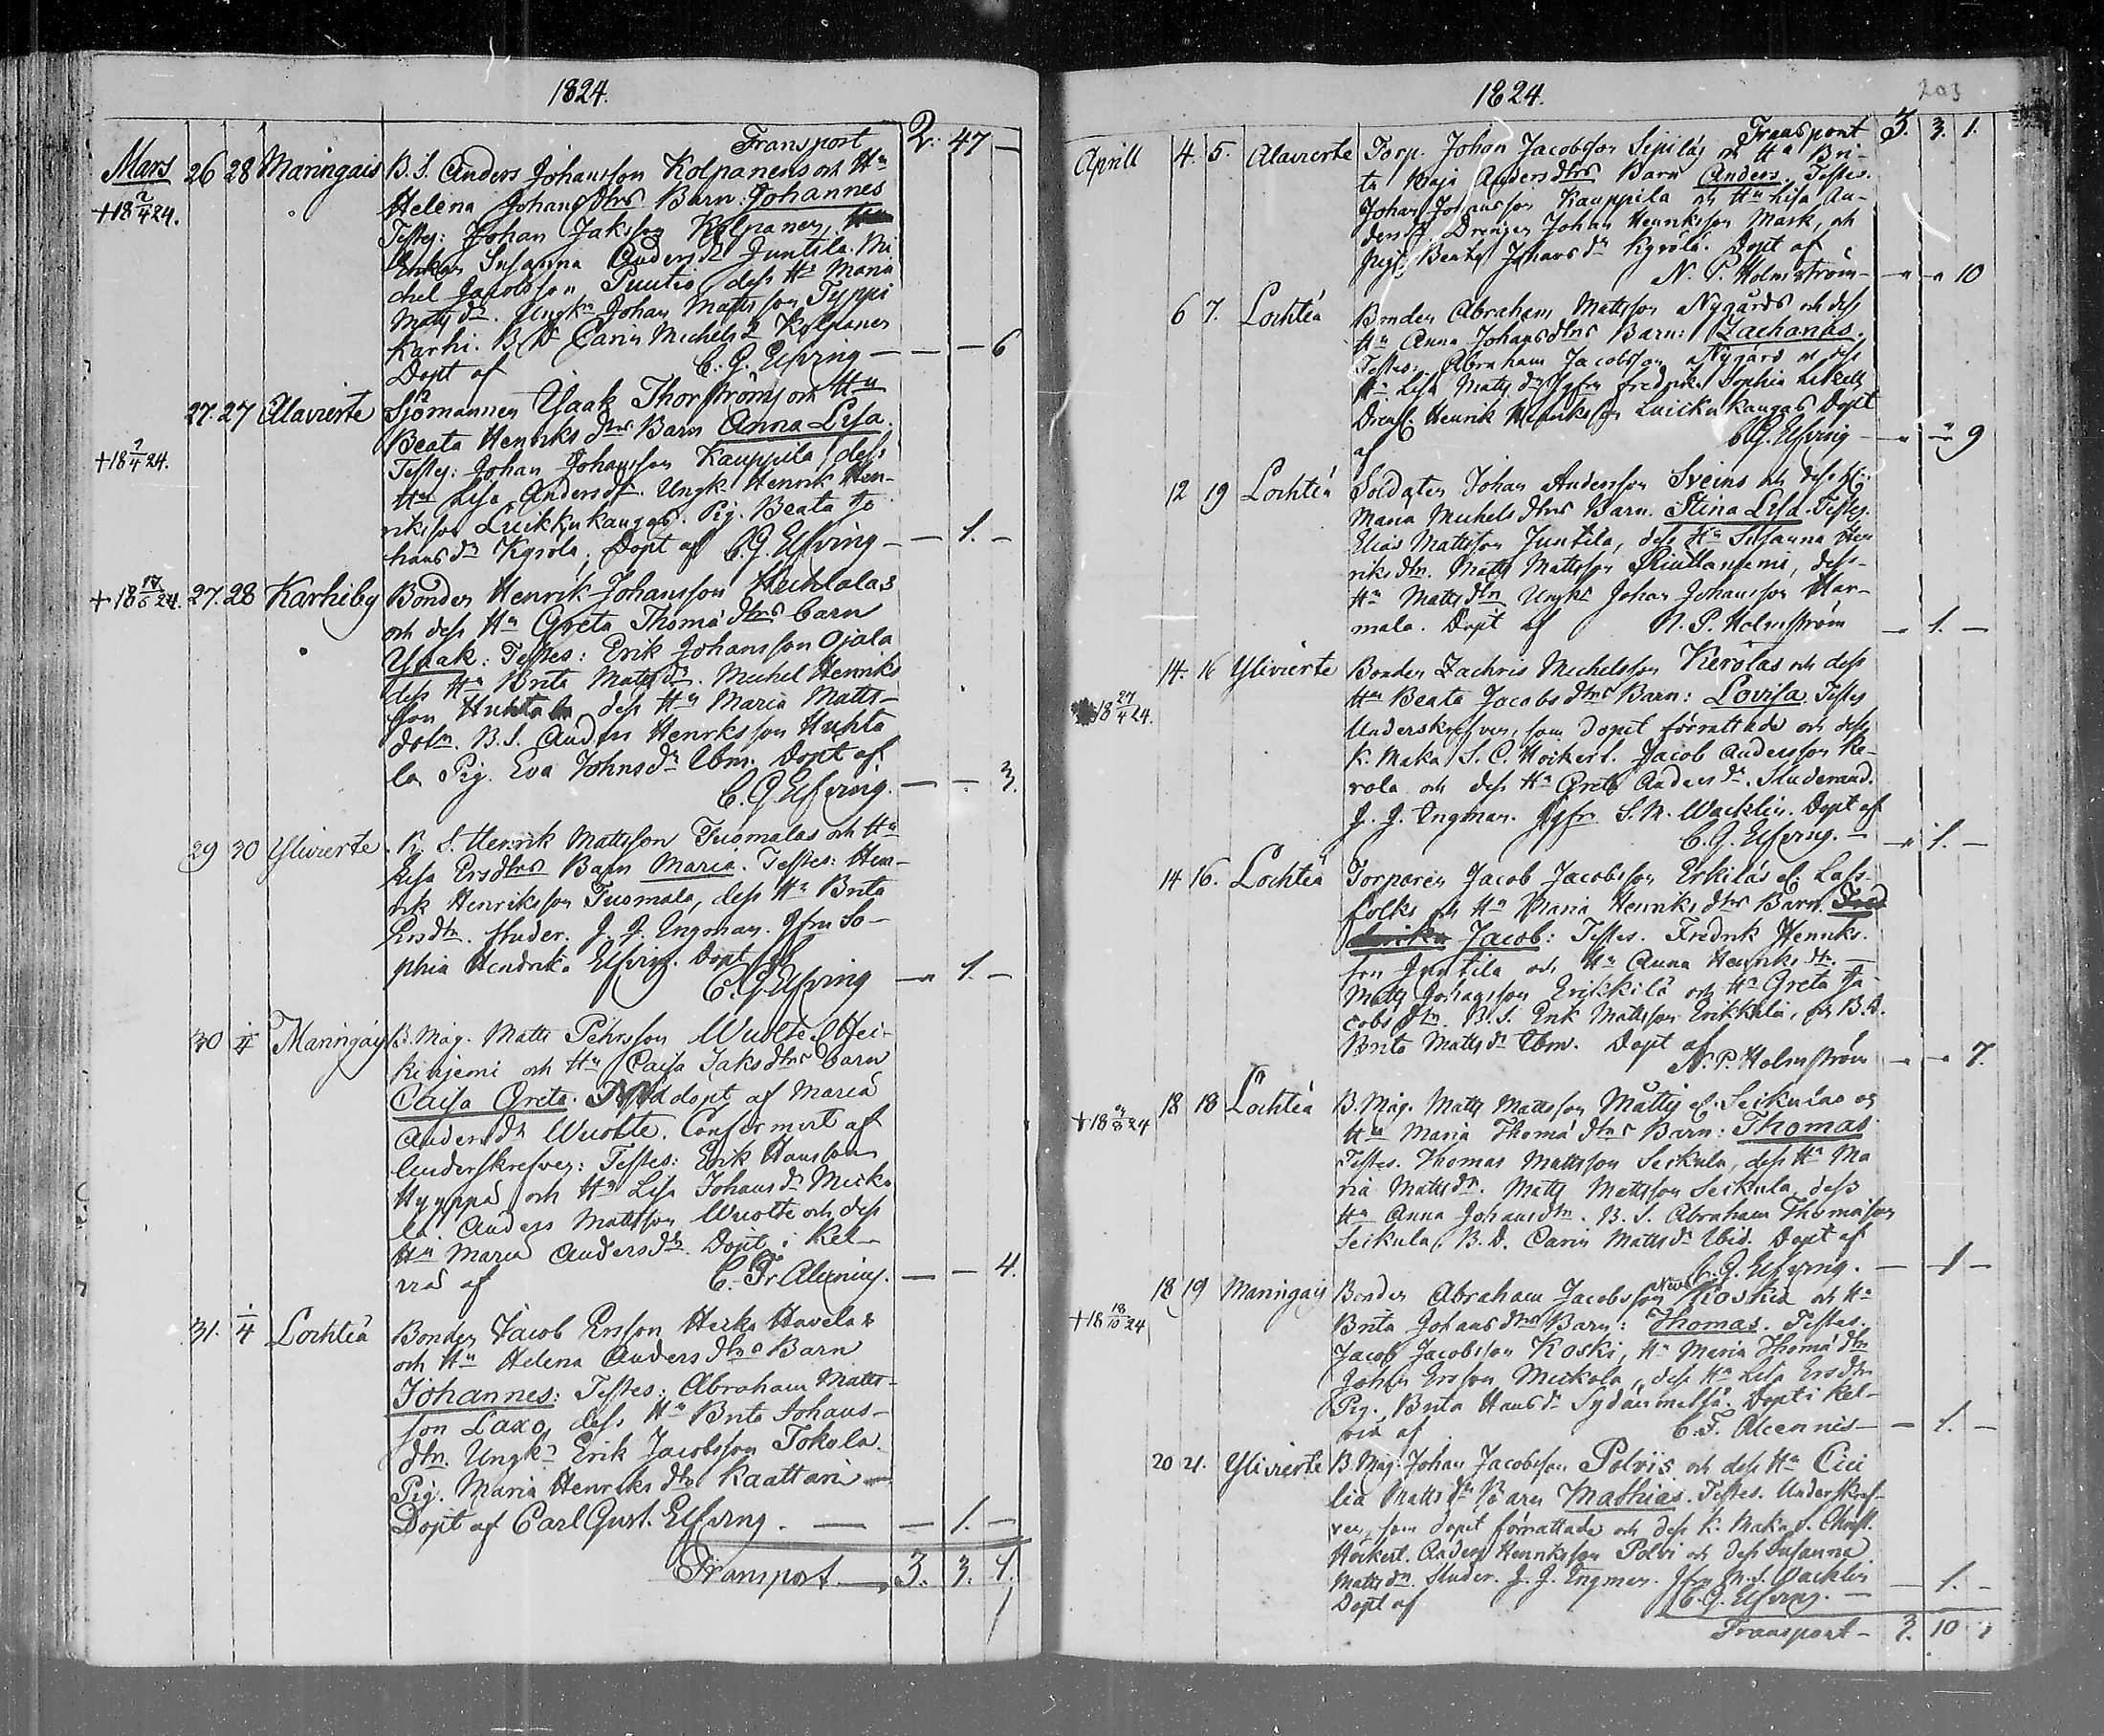 1824.
Transport 2. 47 —
Mars 26 28 Maringais B. S. Anders Johansson Kolpanens och Hu
+18 2/4 24. Helena Johans dtrs Barn: Johannes
Testes: Johan Jaksson Kolpanen,
Enkan Susanna Anders dr Juntila. Mi
chel Jacobsson Puutio, dess Hu Maria
Matts dr. Ungkn Johan Mattsson Typpi
Karhi. B. D. Carin Michels dr Kolpanen
Döpt af C. G. Elfving — — — 6
27. 27 Alavierte Sjömannen Ysaak Thorströms och Hu
Beata Henriks dtrs Barn Anna Lisa.
+18 7/4 24. Testes: Johan Johansson Kauppila, dess
Hu Lisa Anders dr. Ungk. Henrik Hen-
riksson Luikkukangas. Pig. Beata Jo
hans dr Kyrola, Döpt af C. G. Elfving — — 1. —
+18 24. 27. 28 Karhiby Bonden Henrik Johansson Huchtalas
och dess Hu Greta Thomæ dtrs barn
Ysaak: Testes: Erik Johansson Ojala
dess Hu Brita Matts dr. Michel Henriks
son Huhtala dess Hu Maria Matts-
dotn. B. S. Anders Henriksson Huhta
la Pig. Eva Johns dr Ibm. Döpt af
C. G. Elfving. — — 3.
29 30 Ylivierte. B. S. Henrik Mattsson Tuomalas och Hu
Lisa Ersdtrs Barn Maria. Testes: Hen-
rik Henriksson Tuomala, dess Hu Brita
Ersdtr. Studer. J. J. Engman. Jfru So-
phia Hendrika Elfving. Döpt af
C. G. Elfving — 1. —
30 1/4 Maringais B. Måg. Matts Pehrsson Wuolte
och Hu Caisa Jaks dtrs barn
Caisa Greta. Nöddöpt af Maria
Anders dr Wuolte. Confirmert af
Underskrefven: Testes: Erik Hansson
Hyyppä och Hu Lisa Johans dr Micko
la. Anders Mattsson Wuolte och dess
Hu Maria Anders dr. Döpt i Kel-
viå af C. Fr. Alcenius. — — 4.
31. 1/4 Lochteå Bonden Jacob Ersson Havelas
och Hu Helena Anders dtrs Barn
Johannes: Testes: Abraham Matts-
son Laxo, dess Hu Brita Johans-
dtr. Ungkn Erik Jacobsson Tokola.
Pig. Maria Henriks dtr Kaattari —
Döpt af Carl Gust. Elfving. — — 1. —
Transport — 3. 3. 1.
1824. 203
Transport 3. 3. 1.
Aprill 4. 5. Alavierte Torp. Johan Jacobsson Sipiläs och Hu Bri-
ta Kaja Anders dtrs Barn Anders. Testes.
Johan Johansson Kauppila och Hu Lisa An-
ders dr Drengen Johan Henriksson Mark, och
Pig. Beata Johans dr Kyrölä. Döpt af
N. P. Holmström — 10
6 7. Lochteå Bonden Abraham Mattsson Nygårds och dess
Hu Anna Johans dtrs Barn: Zacharias.
Testes. Abraham Jacobsson Nygård och dess
Hu Lisa Matts dr Jfru Fredrika Sophia
Henrik Henriksson Luickukangas Döpt
af C. G. Elfving — 9
12 19 Lochteå Soldaten Johan Andersson Sveins och dess H:
Maria Michels dtrs Barn. Stina Lisa. Testes.
Elias Mattsson Juntila, dess Hu Susanna Hen
riks dtr. Matts Mattsson dess
Hu Matts dtr Ungkn Johan Johansson Har-
mala. Döpt af N. P. Holmström — 1. —
14. 16 Ylivierte Bonden Zachris Michelsson Kerolas och dess
18 27/4 24. Hu Beata Jacobs dtrs Barn: Lovisa. Testes
Underskrefven, som Dopet förrättade och dess
K. Maka S. C. Höckert. Jacob Andersson Ke-
rola och dess Hu Greta Anders dr. Studerand.
J. J. Engman. Jgfr. S. M. Wacklin. Döpt af
C. G. Elfving. — 1. —
14 16. Lochteå Torparen Jacob Jacobsson Erkiläs el. Lass-
folks och Hu Maria Henriks dtrs Barn.
Jacob: Testes. Fredrik Henriks-
son Juntila och Hu Anna Henriks dtr. —
Matts Johansson Erikkilä och Hu Greta Ja-
cobs dtr. B. S. Erik Mattsson Erikkilä, och B. D.
Brita Matts dr Ibm. Döpt af
N. P. Holmström — 7.
18 18 Lochteå B. Måg. Matts Mattsson Måttis el. Seikulas och
+18 24 Hu Maria Thomæ dtrs Barn: Thomas.
Testes. Thomas Mattsson Seikula, dess Hu Ma
ria Matts dtr. Matts Mattsson Seikula, dess
Hu Anna Johans dtr. B. S. Abraham Thomasson
Seikula, B. D. Carin Matts dr Ibid. Döpt af
C. G. Elfving. — 1 —
18 19 Maringais Bonden Abraham Jacobsson Koskis och Hu
+18 18/10 24 Brita Johans dtrs Barn: Thomas. Testes.
Jacob Jacobsson Koski, Hu Maria Thomæ dtr
Johan Ersson Mickola, dess Hu Lisa Ersdtr
Pig. Brita Hans dr Sydänmetsä. Döpt i Kel-
viå af C. F. Alcenius — 1. —
20 21. Ylivierte B. Måg. Johan Jacobsson Polvis och dess Hu Ceci
lia Matts dr Barn Mathias. Testes. Underskref-
ven, som dopet förrättade och dess K. Maka S. Christ.
Höckert. Anders Henriksson Polvi och dess Susanna
Matts dtr. Studer. J. J. Engman. Jfru M. S. Wacklin
Döpt af C. G. Elfving. — 1. —
Transport — 3. 10